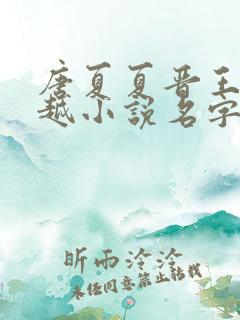 唐夏夏晋王
越小说名字
昕雨泠泠
未经同意禁止转载